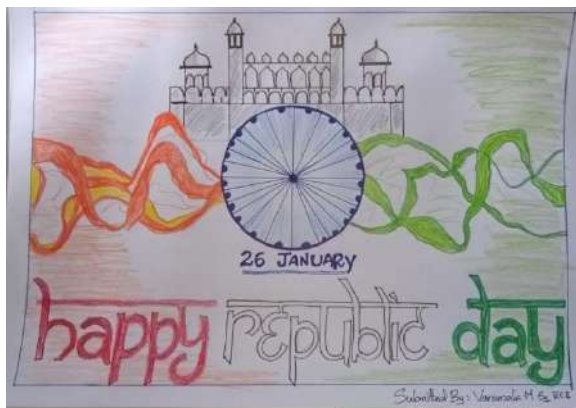 26 JANUARY
happy republic day
Submitted By: Vanamala M S₂ ECE